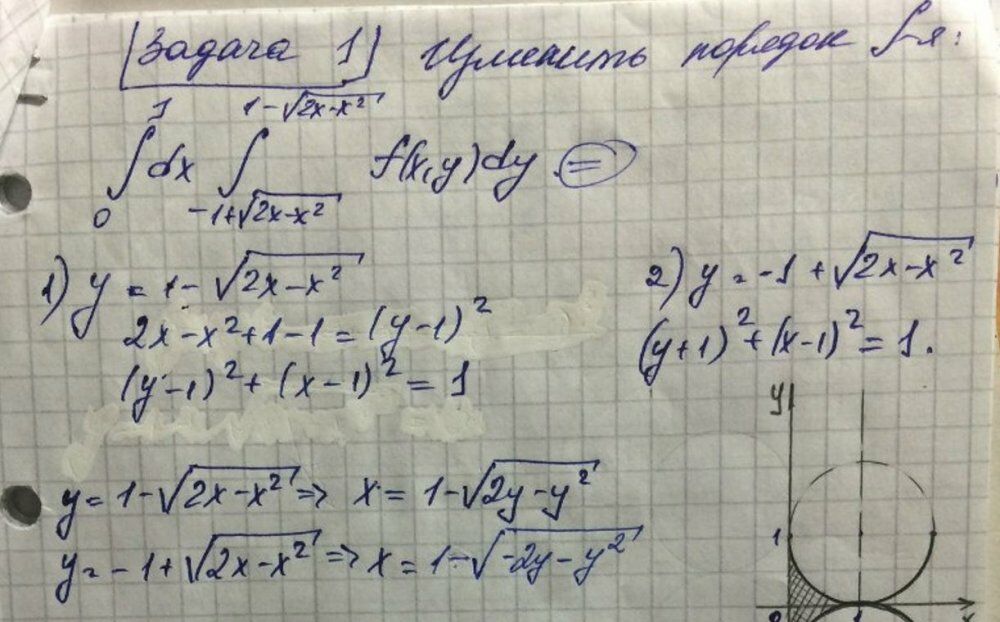 [Задача 1] Изменить порядок ∫-я:
∫₀¹ dx ∫_{-1+√(2x-x²)}^{1-√(2x-x²)} f(x,y)dy =
1) y = 1-√(2x-x²)
2x-x²+1-1=(y-1)²
(y-1)²+(x-1)²=1
2) y = -1+√(2x-x²)
(y+1)²+(x-1)²=1.
y=1-√(2x-x²) => x=1-√(2y-y²)
y=-1+√(2x-x²) => x=1-√(-2y-y²)
y
1
1
x